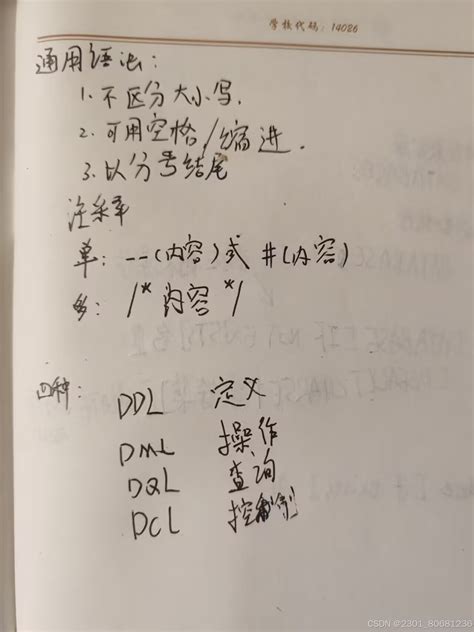 学校代码：14026
通用语法：
1. 不区分大小写.
2. 可用空格/缩进.
3. 以分号结尾
注释
单： --(内容)或 #(内容)
多： /* 内容 */
四种：
DDL 定义
DML 操作
DQL 查询
DCL 控制
CSDN @2301_80681236